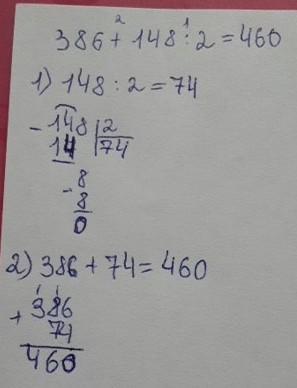 2 1
386 + 148 : 2 = 460
1) 148 : 2 = 74
- 148 | 2
14 | 74
- 8
8
0
2) 386 + 74 = 460
1 1
+ 386
74
460